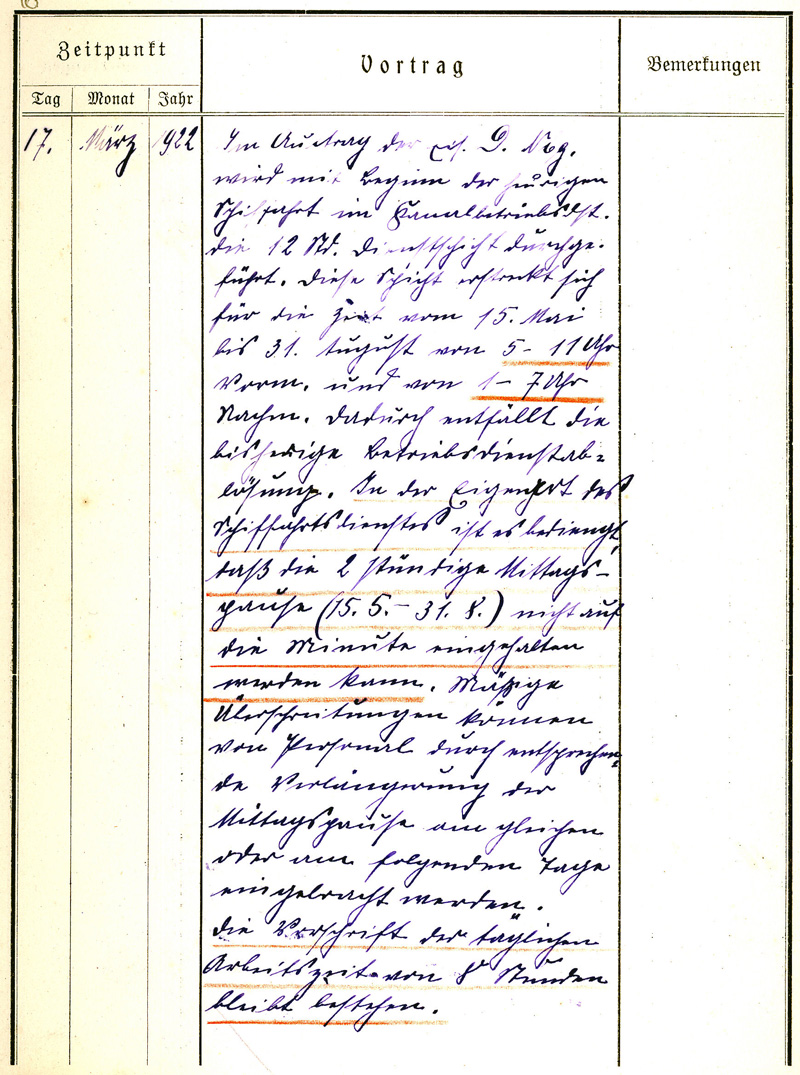 Zeitpunkt
Vortrag
Bemerkungen
Tag Monat Jahr
17. März 1922
Im Auftrag der D. Reg.
wird mit Beginn der heurigen
Schiffahrt im Kanalbetriebsdst.
die 12 Std. Dienstschicht durchge-
führt. Diese Schicht erstreckt sich
für die Zeit vom 15. Mai
bis 31. August von 5 - 11 Uhr
Vorm. und von 1 - 7 Uhr
Nachm. Dadurch entfällt die
bisherige Betriebsdienstab-
lösung. In der Eigenart des
Schiffahrtsdienstes ist es bedingt,
daß die 2 stündige Mittags-
pause (15. 5. - 31. 8.) nicht auf
die Minute eingehalten
werden kann. Mäßige
Überschreitungen können
von Personal durch entsprechen-
de Verlängerung der
Mittagspause am gleichen
oder am folgenden Tage
eingebracht werden.
Die Vorschrift der täglichen
Arbeitszeit von 8 Stunden
bleibt bestehen.